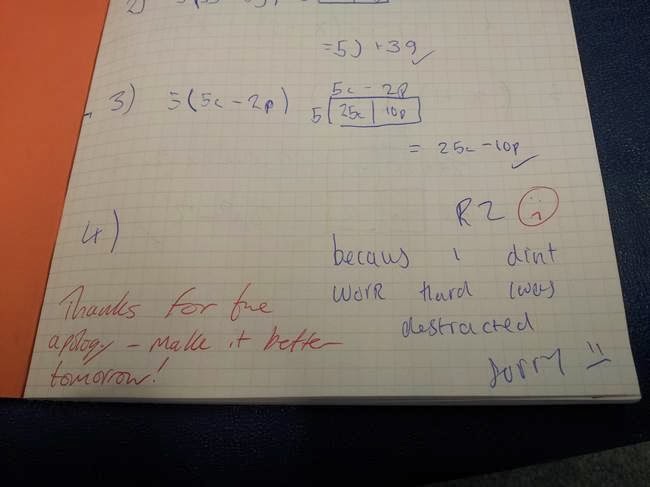 2)
= 5) + 39
3) 5(5c - 2p)
5c - 2p
5 25c 10p
= 25c - 10p
R2
4)
becaus i dint
work hard I was
destracted
sorry
Thanks for the
apology - make it better
tomorrow!